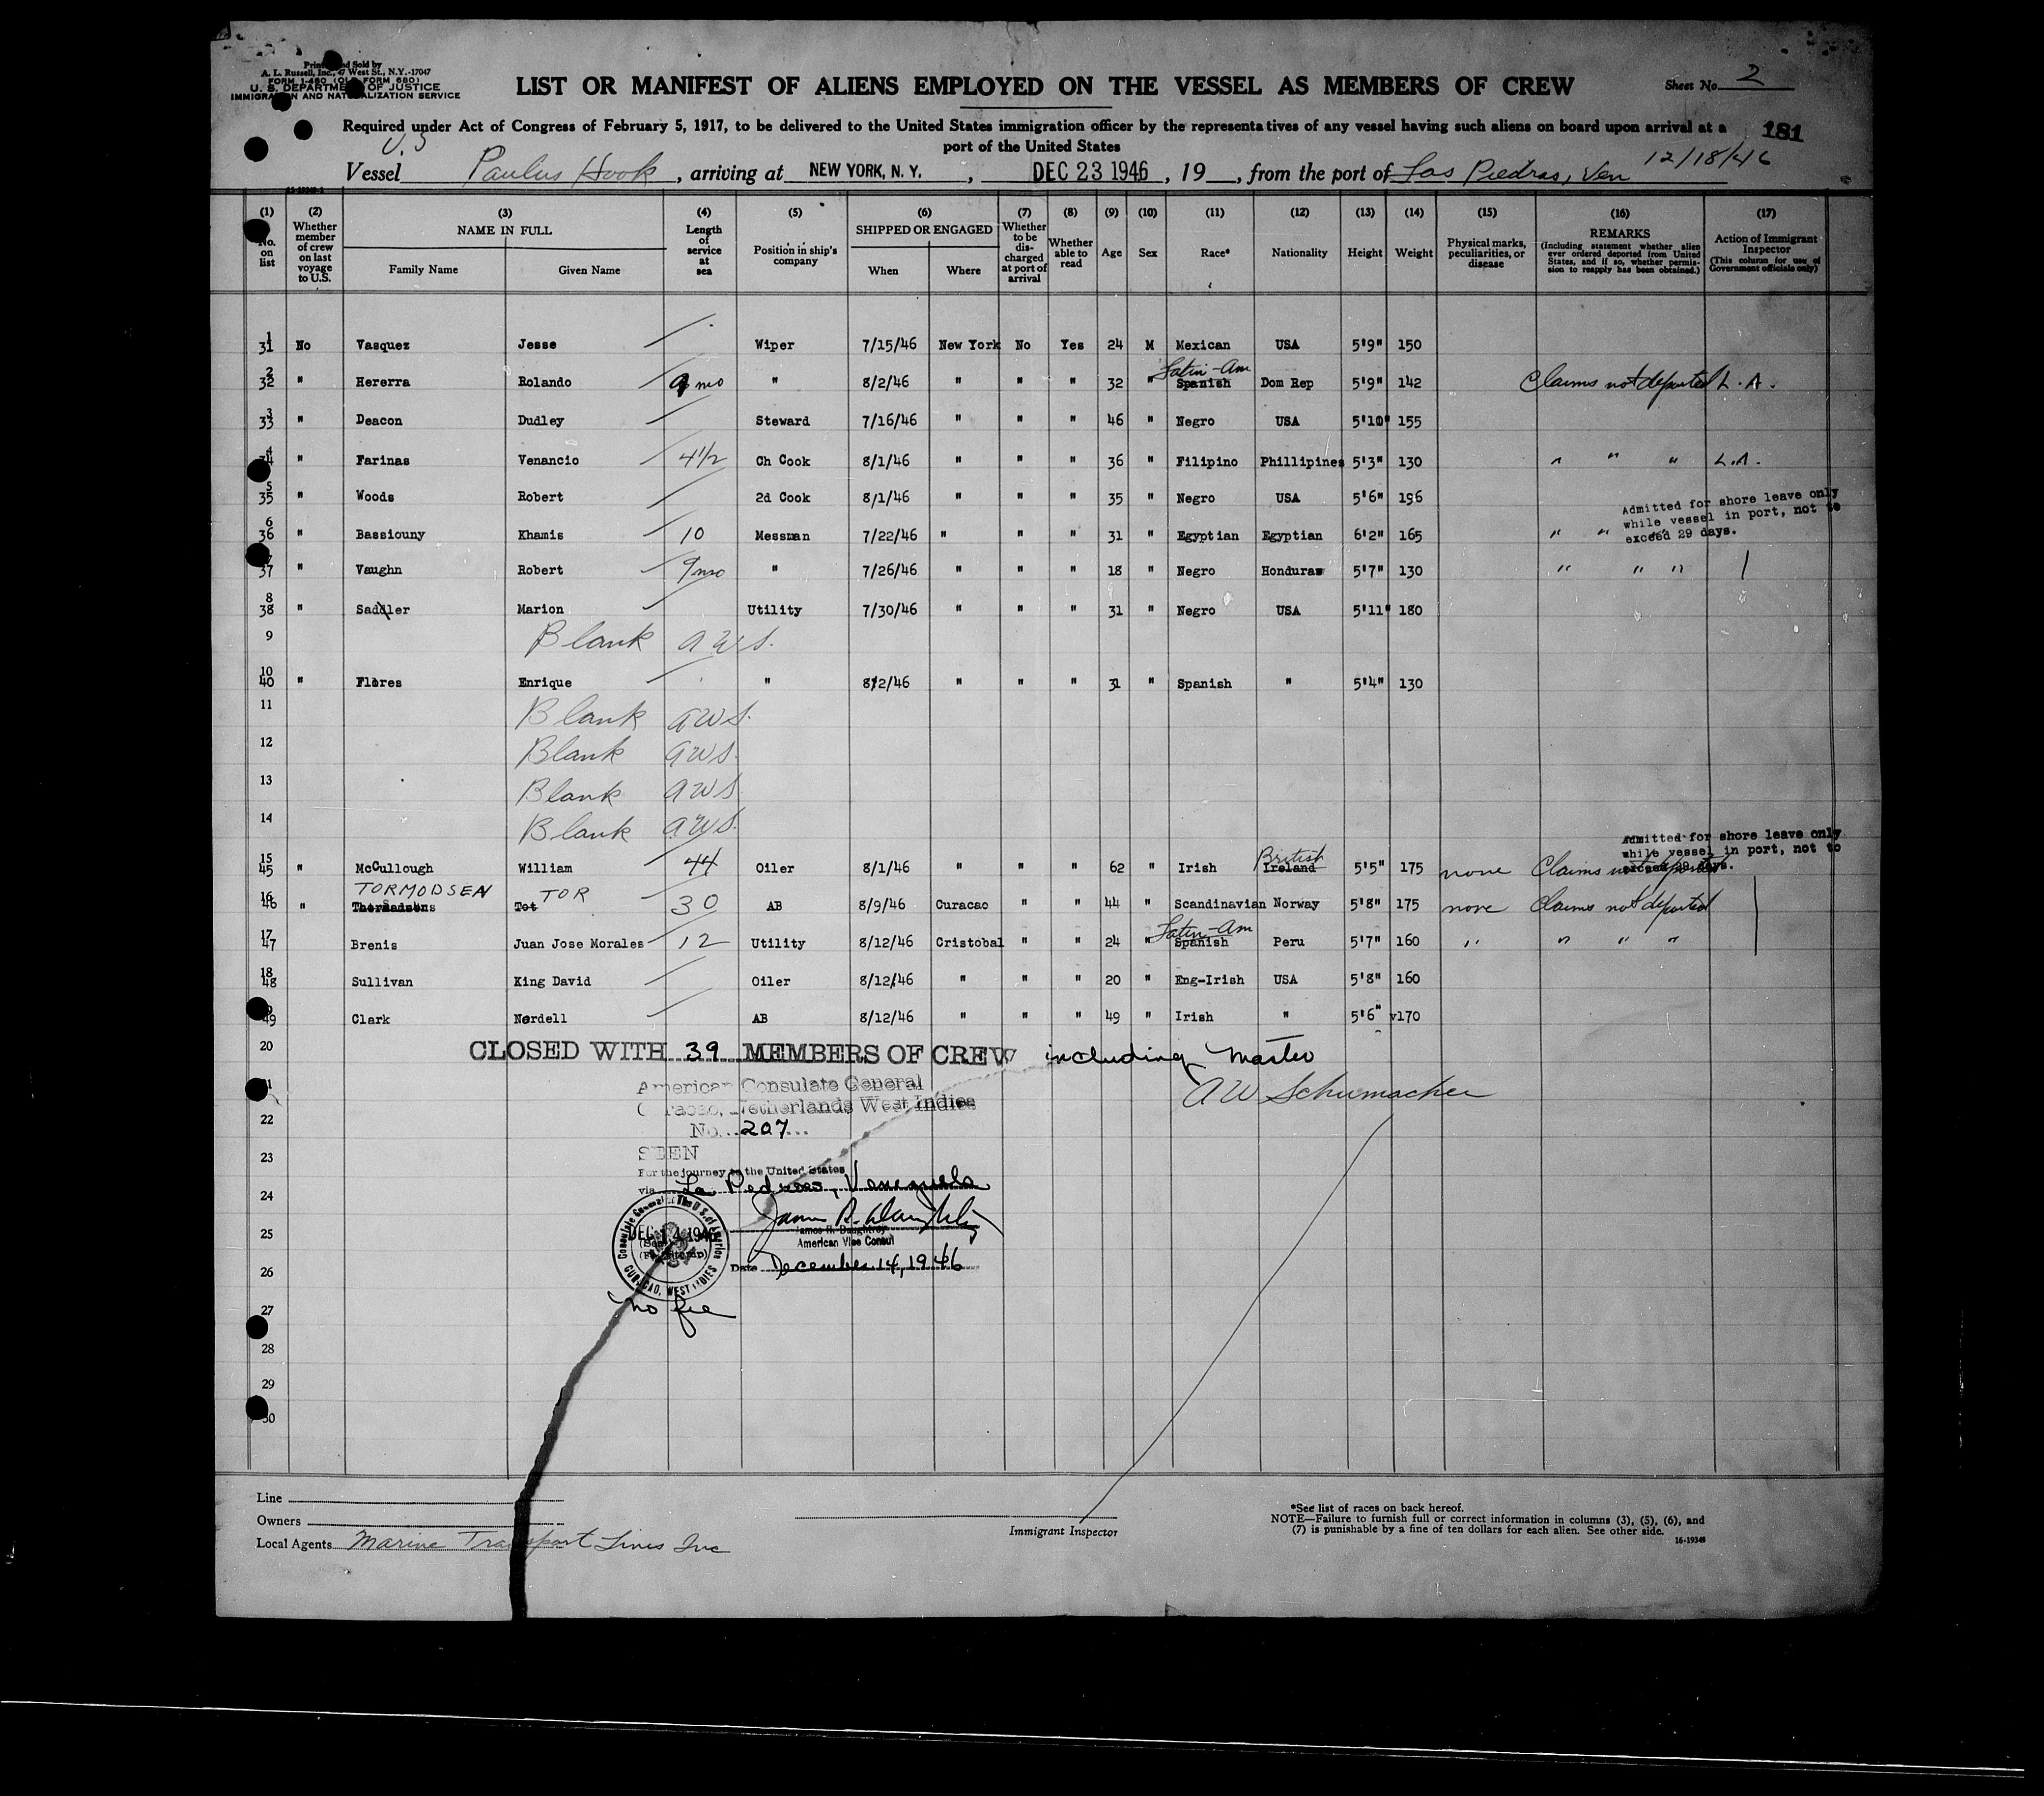 Printed and Sold by
A. L. Russell, Inc., 47 West St., N.Y.-17047
FORM I-480 (OLD FORM 680)
U. S. DEPARTMENT OF JUSTICE
IMMIGRATION AND NATURALIZATION SERVICE
LIST OR MANIFEST OF ALIENS EMPLOYED ON THE VESSEL AS MEMBERS OF CREW
Sheet No. 2
Required under Act of Congress of February 5, 1917, to be delivered to the United States immigration officer by the representatives of any vessel having such aliens on board upon arrival at a
port of the United States
181
U.S
Vessel Paulus Hook, arriving at NEW YORK, N. Y., DEC 23 1946, 19__, from the port of Las Piedras, Ven 12/18/46
(1) No. on list
(2) Whether member of crew on last voyage to U.S.
(3) NAME IN FULL Family Name Given Name
(4) Length of service at sea
(5) Position in ship's company
(6) SHIPPED OR ENGAGED When Where
(7) Whether to be discharged at port of arrival
(8) Whether able to read
(9) Age
(10) Sex
(11) Race*
(12) Nationality
(13) Height
(14) Weight
(15) Physical marks, peculiarities, or disease
(16) REMARKS (Including statement whether alien ever ordered deported from United States, and if so, whether permission to reapply has been obtained.)
(17) Action of Immigrant Inspector (This column for use of Government officials only)
1 31 No Vasquez Jesse Wiper 7/15/46 New York No Yes 24 M Mexican USA 5'9" 150
2 32 " Hererra Rolando 9 mo " 8/2/46 " " " 32 " Latin-Am Spanish Dom Rep 5'9" 142 Claims not deported L.A.
3 33 " Deacon Dudley Steward 7/16/46 " " " 46 " Negro USA 5'10" 155
4 34 " Farinas Venancio 4½ Ch Cook 8/1/46 " " " 36 " Filipino Phillipines 5'3" 130 " " " L.A.
5 35 " Woods Robert 2d Cook 8/1/46 " " " 35 " Negro USA 5'6" 196
Admitted for shore leave only
while vessel in port, not to
exceed 29 days.
6 36 " Bassiouny Khamis 10 Messman 7/22/46 " " " 31 " Egyptian Egyptian 6'2" 165 " " "
7 37 " Vaughn Robert 9mo " 7/26/46 " " " 18 " Negro Honduras 5'7" 130 " " "
8 38 " Saddler Marion Utility 7/30/46 " " " 31 " Negro USA 5'11" 180
9 Blank AWS.
10 40 " Flores Enrique " 8/2/46 " " " 31 " Spanish " 5'4" 130
11 Blank AWS.
12 Blank AWS.
13 Blank AWS
14 Blank AWS.
Admitted for shore leave only
while vessel in port, not to
exceed 29 days.
15 45 " McCullough William 44 Oiler 8/1/46 " " " 62 " Irish British Ireland 5'5" 175 none Claims not deported
TORMODSEN TOR
16 46 " Tot 30 AB 8/9/46 Curacao " " 44 " Scandinavian Norway 5'8" 175 none Claims not deported
17 47 Brenis Juan Jose Morales 12 Utility 8/12/46 Cristobal " " 24 " Latin-Am Spanish Peru 5'7" 160 " " " "
18 48 Sullivan King David Oiler 8/12/46 " " " 20 " Eng-Irish USA 5'8" 160
19 49 Clark Nordell AB 8/12/46 " " " 49 " Irish " 5'6" 170
20 CLOSED WITH 39 MEMBERS OF CREW including Master
21 AW Schumacher
American Consulate General
Curacao, Netherlands West Indies
22 No. 207
23 SEEN
For the journey to the United States
24 via La Pedras, Venezuela
25 James R. Daughtrey
American Vice Consul
Consulate General of The U.S. of America
DEC 14 1946
CURACAO, WEST INDIES
26 Date December 14, 1946
27 no fee
28
29
30
Line
Owners
Local Agents Marine Transport Lines Inc
Immigrant Inspector
*See list of races on back hereof.
NOTE—Failure to furnish full or correct information in columns (3), (5), (6), and
(7) is punishable by a fine of ten dollars for each alien. See other side.
16-19349